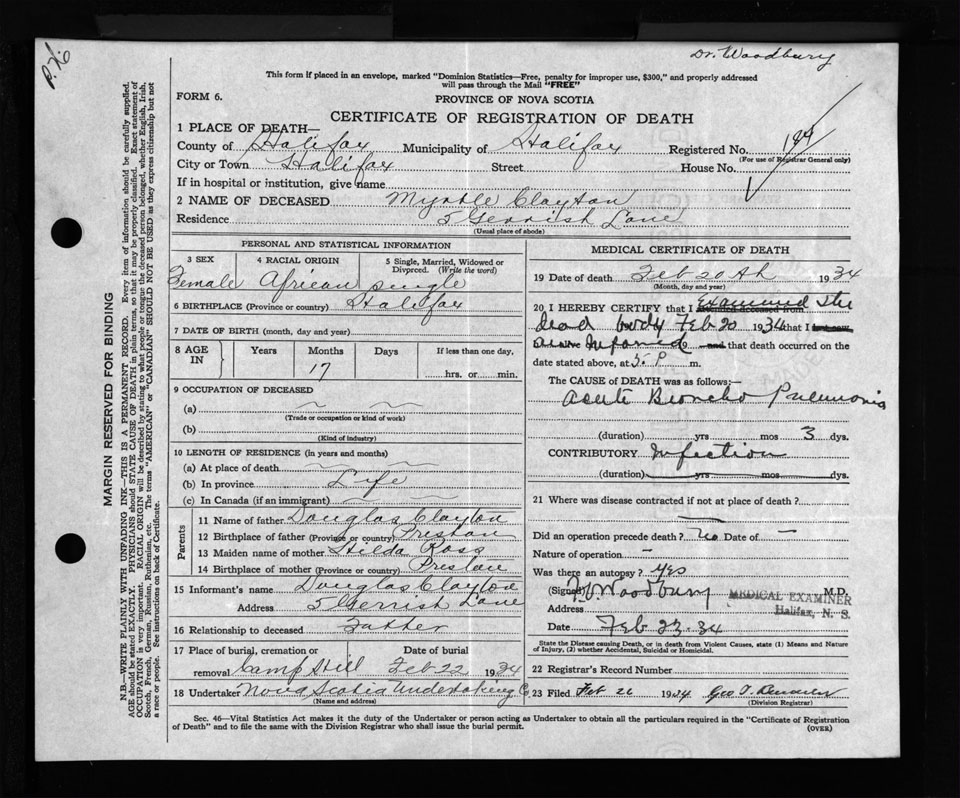 P.X.6
Dr. Woodbury
This form if placed in an envelope, marked "Dominion Statistics—Free, penalty for improper use, $300," and properly addressed
will pass through the Mail "FREE"
FORM 6.
PROVINCE OF NOVA SCOTIA
CERTIFICATE OF REGISTRATION OF DEATH
MARGIN RESERVED FOR BINDING
N.B.—WRITE PLAINLY WITH UNFADING INK—THIS IS A PERMANENT RECORD. Every item of information should be carefully supplied.
AGE should be stated EXACTLY. PHYSICIANS should STATE CAUSE OF DEATH in plain terms, so that it may be properly classified. Exact statement of
OCCUPATION is very important. RACIAL ORIGIN will be described by stating to what people or tongue the deceased person belonged, whether English, Irish,
Scotch, French, German, Russian, Ruthenian, etc. The terms "AMERICAN" or "CANADIAN" SHOULD NOT BE USED as they express citizenship but not
a race or people. See instructions on back of Certificate.
1 PLACE OF DEATH—
County of Halifax Municipality of Halifax Registered No. 194
(For use of Registrar General only)
City or Town Halifax Street House No.
If in hospital or institution, give name
2 NAME OF DECEASED Myrtle Clayton
Residence 5 Gerrish Lane
(Usual place of abode)
PERSONAL AND STATISTICAL INFORMATION
3 SEX 4 RACIAL ORIGIN 5 Single, Married, Widowed or Divorced. (Write the word)
Female African single
6 BIRTHPLACE (Province or country) Halifax
7 DATE OF BIRTH (month, day and year)
8 AGE IN Years Months Days If less than one day,
17 hrs. or min.
9 OCCUPATION OF DECEASED
(a)
(Trade or occupation or kind of work)
(b)
(Kind of industry)
10 LENGTH OF RESIDENCE (in years and months)
(a) At place of death
(b) In province Life
(c) In Canada (if an immigrant)
Parents
11 Name of father Douglas Clayton
12 Birthplace of father (Province or country) Preston
13 Maiden name of mother Hilda Ross
14 Birthplace of mother (Province or country) Preston
15 Informant's name Douglas Clayton
Address 5 Gerrish Lane
16 Relationship to deceased Father
17 Place of burial, cremation or Date of burial
removal Camp Hill Feb 22 1934
18 Undertaker Nova Scotia Undertaking Co.
(Name and address)
MEDICAL CERTIFICATE OF DEATH
19 Date of death Feb 20th 1934
(Month, day and year)
20 I HEREBY CERTIFY that I attended deceased from Examined the
dead body Feb 20 1934 that I last saw
Informed and that death occurred on the
date stated above, at 5. P. m.
The CAUSE of DEATH was as follows:—
Acute Broncho Pneumonia
(duration) yrs mos 3 dys.
CONTRIBUTORY Infection
(duration) yrs mos dys.
21 Where was disease contracted if not at place of death?
Did an operation precede death? No Date of —
Nature of operation —
Was there an autopsy? Yes
(Signed) Woodbury M.D.
MEDICAL EXAMINER
Halifax, N. S.
Address
Date Feb 23-34
State the Disease causing Death, or in death from Violent Causes, state (1) Means and Nature
of Injury, (2) whether Accidental, Suicidal or Homicidal.
22 Registrar's Record Number
23 Filed Feb 26 1934 Geo T.
(Division Registrar)
Sec. 46—Vital Statistics Act makes it the duty of the Undertaker or person acting as Undertaker to obtain all the particulars required in the "Certificate of Registration
of Death" and to file the same with the Division Registrar who shall issue the burial permit.
(OVER)